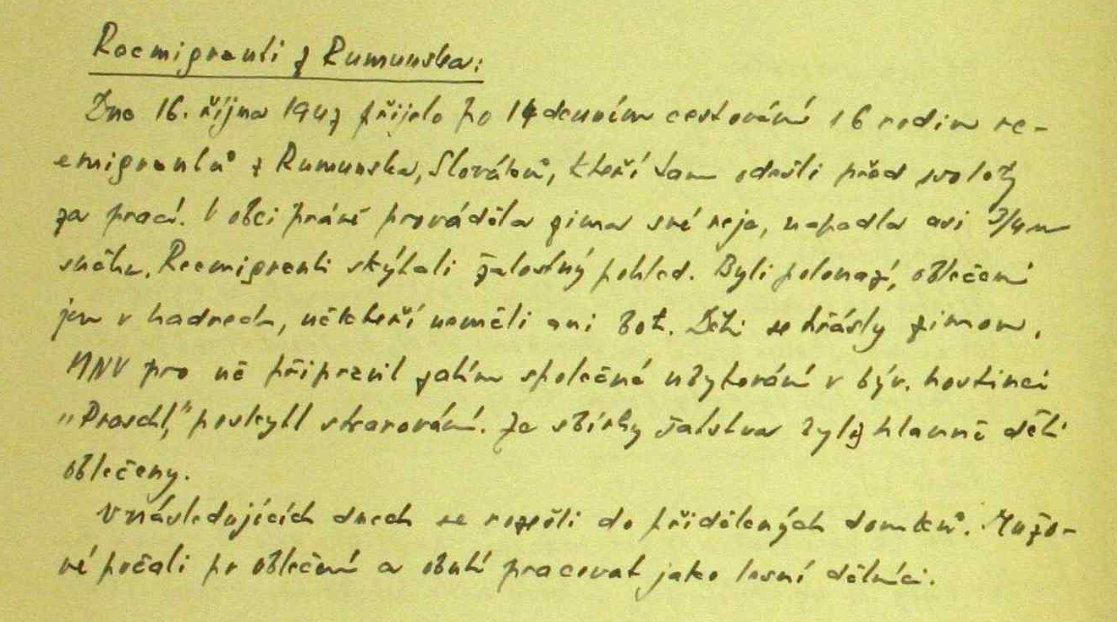 Reemigranti z Rumunska:
Dne 16. října 1947 přijelo po 14denním cestování 16 rodin re-
emigrantů z Rumunska, Slováků, kteří tam odešli před svoloty
za prací. V obci právě prováděla zima své reje, napadla asi 3/4 m
sněhu. Reemigranti skýtali žalostný pohled. Byli polonazí, oblečeni
jen v hadrech, někteří neměli ani bot. Děti se třásly zimou.
MNV pro ně připravil zatím společné ubytování v býv. hostinci
"Proschl", poskytl stravování. Ze sbírky šatstva byly hlavně děti
oblečeny.
V následujících dnech se rozešli do přidělených domků. Mužo-
vé počali po oblečení a obutí pracovat jako lesní dělníci.